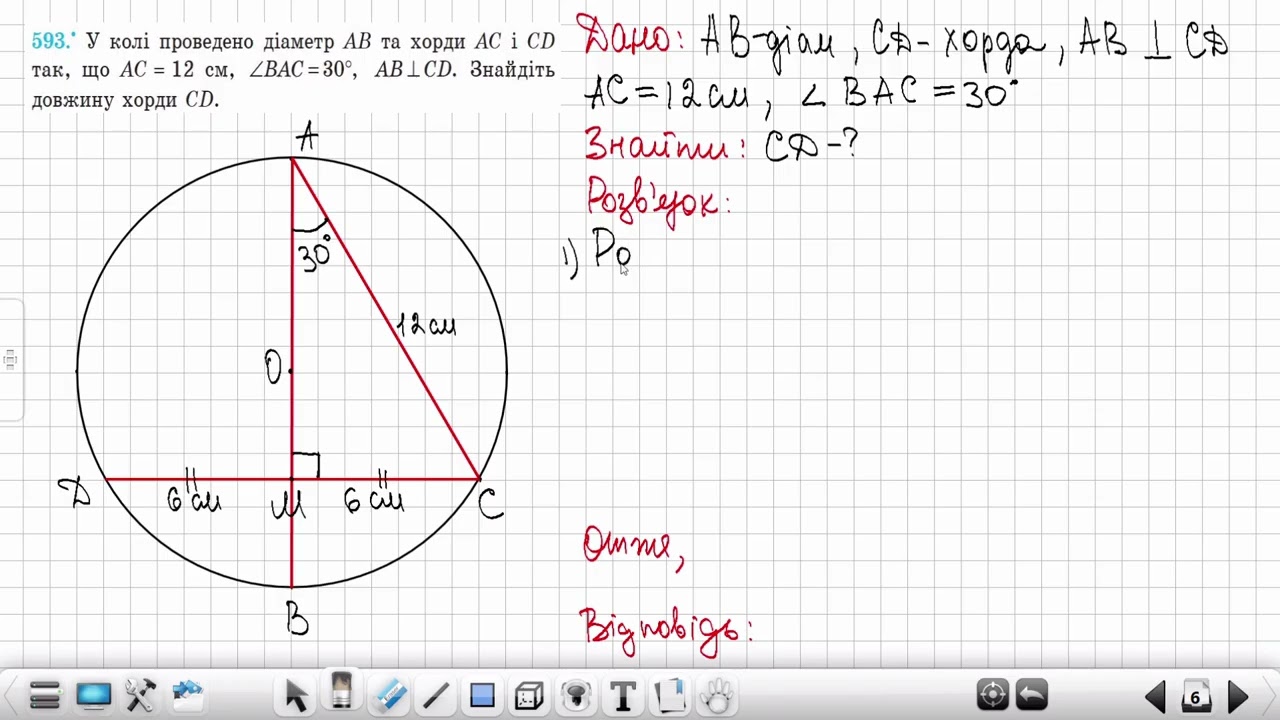 593.• У колі проведено діаметр AB та хорди AC і CD
так, що AC = 12 см, ∠BAC = 30°, AB ⊥ CD. Знайдіть
довжину хорди CD.
Дано: AB-діам, CD - хорда, AB ⊥ CD
AC = 12 см, ∠ BAC = 30°
Знайти: CD - ?
Розв'язок:
1) Ро
A
30°
12 см
O
D
6 см
M
6 см
C
B
Отже,
Відповідь:
T
6